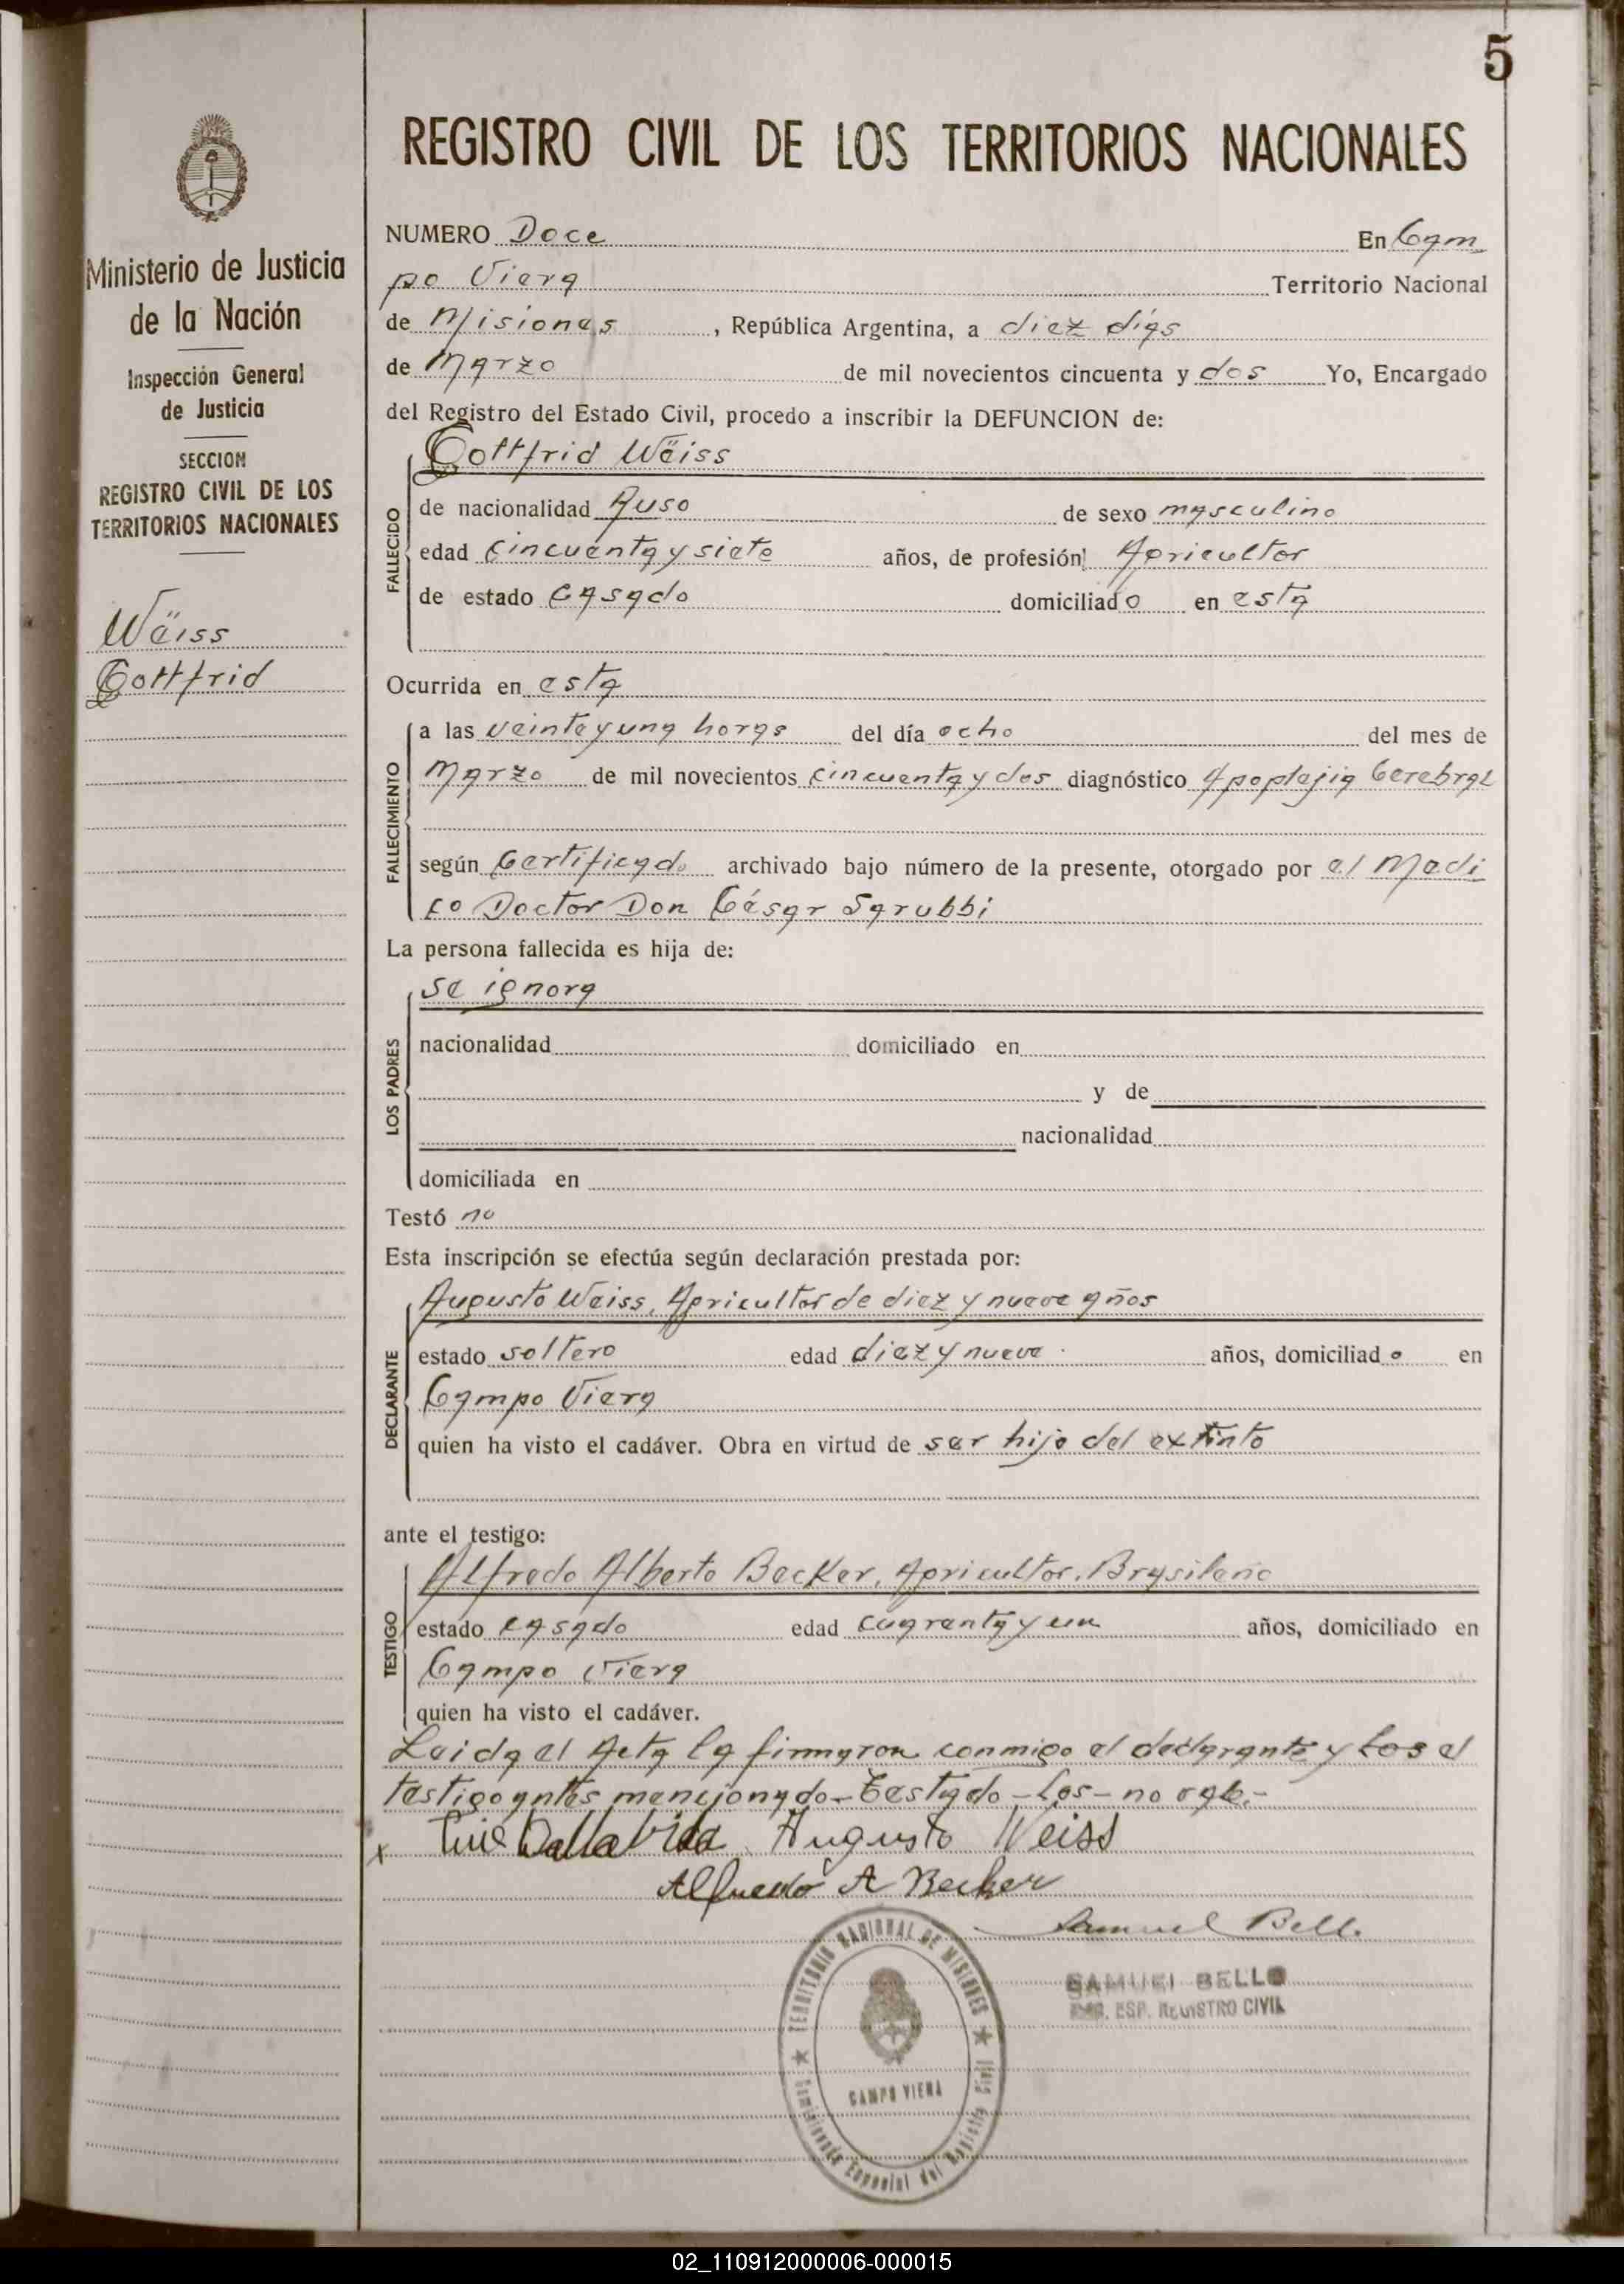 5
REGISTRO CIVIL DE LOS TERRITORIOS NACIONALES
Ministerio de Justicia
de la Nación
Inspección General
de Justicia
SECCION
REGISTRO CIVIL DE LOS
TERRITORIOS NACIONALES
Wëiss
Gottfrid
NUMERO Doce En Cam
po Viera Territorio Nacional
de Misiones, República Argentina, a diez días
de Marzo de mil novecientos cincuenta y dos Yo, Encargado
del Registro del Estado Civil, procedo a inscribir la DEFUNCION de:
Gottfrid Wëiss
FALLECIDO
de nacionalidad Ruso de sexo masculino
edad cincuenta y siete años, de profesión Agricultor
de estado casado domiciliado en esta
Ocurrida en esta
FALLECIMIENTO
a las veinte y una horas del día ocho del mes de
Marzo de mil novecientos cincuenta y dos diagnóstico Apoplejia Cerebral
según Certificado archivado bajo número de la presente, otorgado por el Medi
co Doctor Don César Sarubbi
La persona fallecida es hija de:
LOS PADRES
se ignora
nacionalidad domiciliado en
y de
nacionalidad
domiciliada en
Testó no
Esta inscripción se efectúa según declaración prestada por:
DECLARANTE
Augusto Weiss, Agricultor de diez y nueve años
estado soltero edad diez y nueve años, domiciliado en
Campo Viera
quien ha visto el cadáver. Obra en virtud de ser hijo del extinto
ante el testigo:
TESTIGO
Alfredo Alberto Becker, Agricultor, Brasileño
estado casado edad cuarenta y un años, domiciliado en
Campo Viera
quien ha visto el cadáver.
Leida el Acta la firmaron conmigo el declarante y los el
testigo antes mencionado - Testado - Los - no vale.-
x Luis Dalla Vida Augusto Weiss
Alfredo A Becker
Samuel Bello
SAMUEL BELLO
ESP. REGISTRO CIVIL
TERRITORIO NACIONAL DE MISIONES
CAMPO VIERA
Especial del Registro
02_110912000006-000015